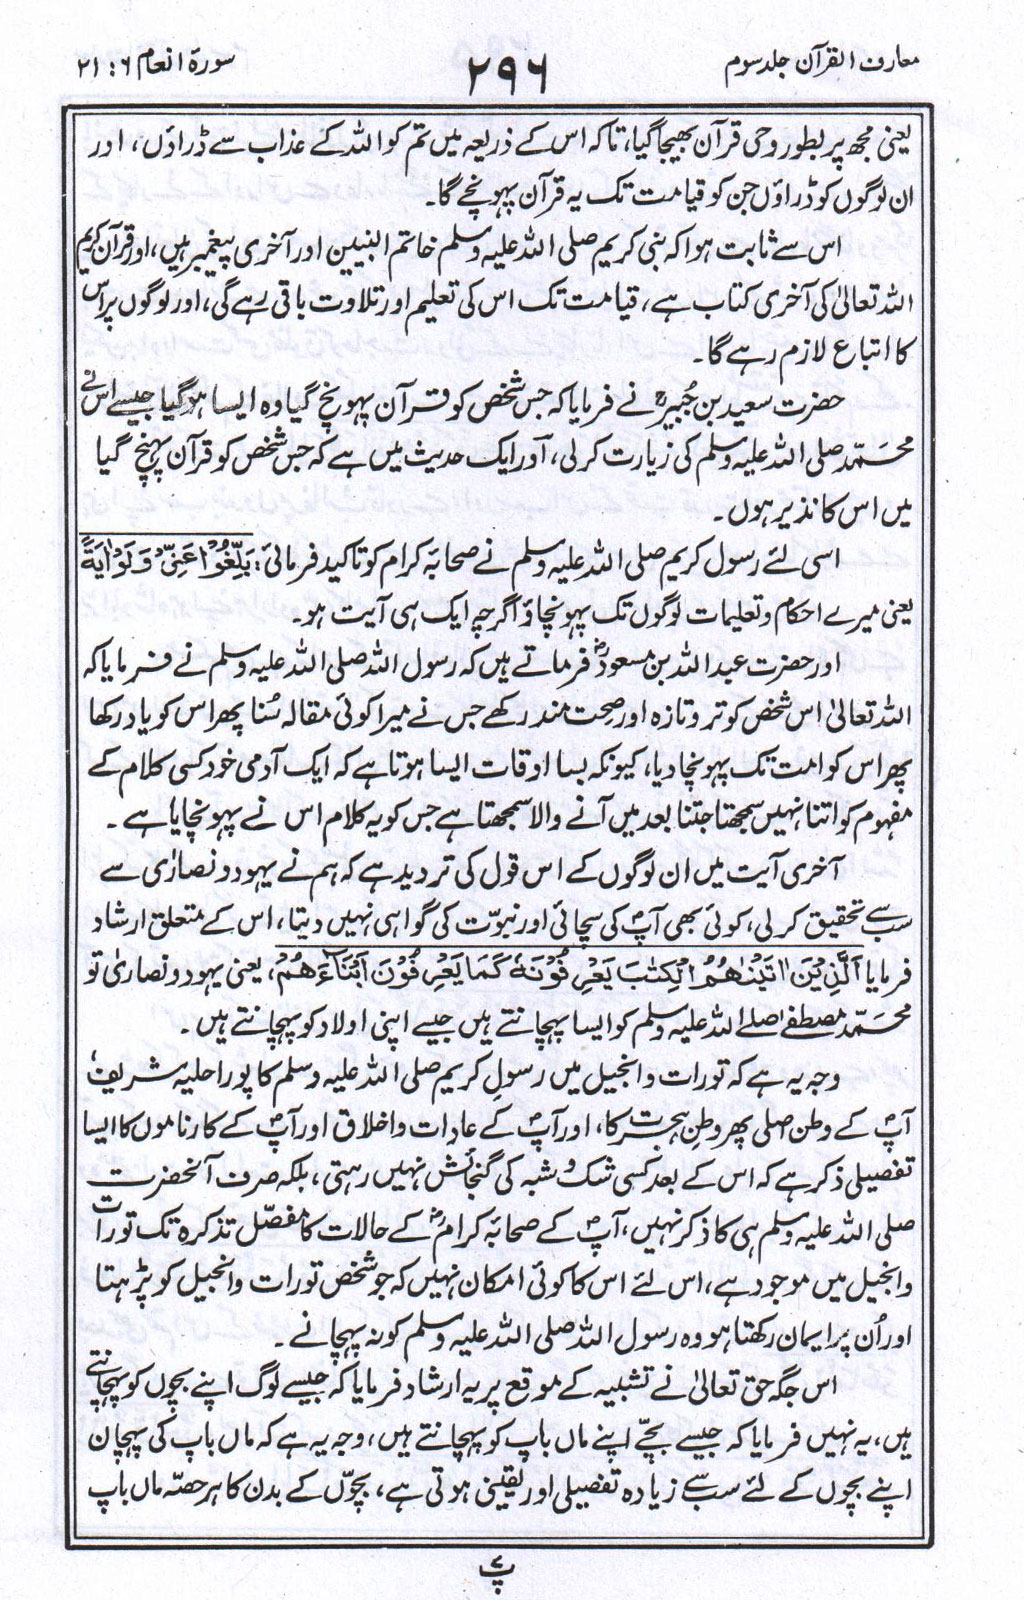 معارف القرآن جلد سوم
۲۹۶
سورۃ انعام ۶ : ۲۱
یعنی مجھ پر بطور وحی قرآن بھیجا گیا، تاکہ اس کے ذریعہ میں تم کو اللہ کے عذاب سے ڈراؤں، اور
ان لوگوں کو ڈراؤں جن کو قیامت تک یہ قرآن پہونچے گا۔
اس سے ثابت ہوا کہ نبی کریم صلی اللہ علیہ وسلم خاتم النبیین اور آخری پیغمبر ہیں، اور قرآن کریم
اللہ تعالیٰ کی آخری کتاب ہے، قیامت تک اس کی تعلیم اور تلاوت باقی رہے گی، اور لوگوں پر اس
کا اتباع لازم رہے گا۔
حضرت سعید بن جُبیرؒ نے فرمایا کہ جس شخص کو قرآن پہونچ گیا وہ ایسا ہو گیا جیسے اس نے
محمّد صلی اللہ علیہ وسلم کی زیارت کر لی، اور ایک حدیث میں ہے کہ جس شخص کو قرآن پہنچ گیا
میں اس کا نذیر ہوں۔
اسی لئے رسول کریم صلی اللہ علیہ وسلم نے صحابۂ کرام کو تاکید فرمائی: بَلِّغُوْا عَنِّیْ وَلَوْ اٰیَةً
یعنی میرے احکام و تعلیمات لوگوں تک پہونچاؤ اگرچہ ایک ہی آیت ہو۔
اور حضرت عبد اللہ بن مسعودؓ فرماتے ہیں کہ رسول اللہ صلی اللہ علیہ وسلم نے فرمایا کہ
اللہ تعالیٰ اس شخص کو تر و تازہ اور صحت مند رکھے جس نے میرا کوئی مقالہ سُنا پھر اس کو یاد رکھا
پھر اس کو امت تک پہونچا دیا، کیونکہ بسا اوقات ایسا ہوتا ہے کہ ایک آدمی خود کسی کلام کے
مفہوم کو اتنا نہیں سمجھتا جتنا بعد میں آنے والا سمجھتا ہے جس کو یہ کلام اس نے پہونچایا ہے۔
آخری آیت میں ان لوگوں کے اس قول کی تردید ہے کہ ہم نے یہود و نصاریٰ سے
سب سے تحقیق کر لی، کوئی بھی آپؐ کی سچائی اور نبوّت کی گواہی نہیں دیتا، اس کے متعلق ارشاد
فرمایا اَلَّذِیْنَ اٰتَیْنٰھُمُ الْکِتٰبَ یَعْرِفُوْنَهٗ کَمَا یَعْرِفُوْنَ اَبْنَآءَھُمْ، یعنی یہود و نصاریٰ تو
محمّد مصطفےٰ صلے اللہ علیہ وسلم کو ایسا پہچانتے ہیں جیسے اپنی اولاد کو پہچانتے ہیں۔
وجہ یہ ہے کہ تورات و انجیل میں رسولِ کریم صلی اللہ علیہ وسلم کا پورا حلیہ شریف،
آپؐ کے وطن اصلی پھر وطنِ ہجرت کا، اور آپؐ کے عادات و اخلاق اور آپؐ کے کارناموں کا ایسا
تفصیلی ذکر ہے کہ اس کے بعد کسی شک و شبہ کی گنجائش نہیں رہتی، بلکہ صرف آنحضرت
صلی اللہ علیہ وسلم ہی کا ذکر نہیں، آپؐ کے صحابۂ کرامؓ کے حالات کا مفصّل تذکرہ تک تورات
و انجیل میں موجود ہے، اس لئے اس کا کوئی امکان نہیں کہ جو شخص تورات و انجیل کو پڑھتا
اور اُن پر ایمان رکھتا ہو وہ رسول اللہ صلی اللہ علیہ وسلم کو نہ پہچانے۔
اس جگہ حق تعالیٰ نے تشبیہ کے موقع پر یہ ارشاد فرمایا کہ جیسے لوگ اپنے بچوں کو پہچانتے
ہیں، یہ نہیں فرمایا کہ جیسے بچّے اپنے ماں باپ کو پہچانتے ہیں، وجہ یہ ہے کہ ماں باپ کی پہچان
اپنے بچوں کے لئے سب سے زیادہ تفصیلی اور یقینی ہوتی ہے، بچّوں کے بدن کا ہر حصّہ ماں باپ